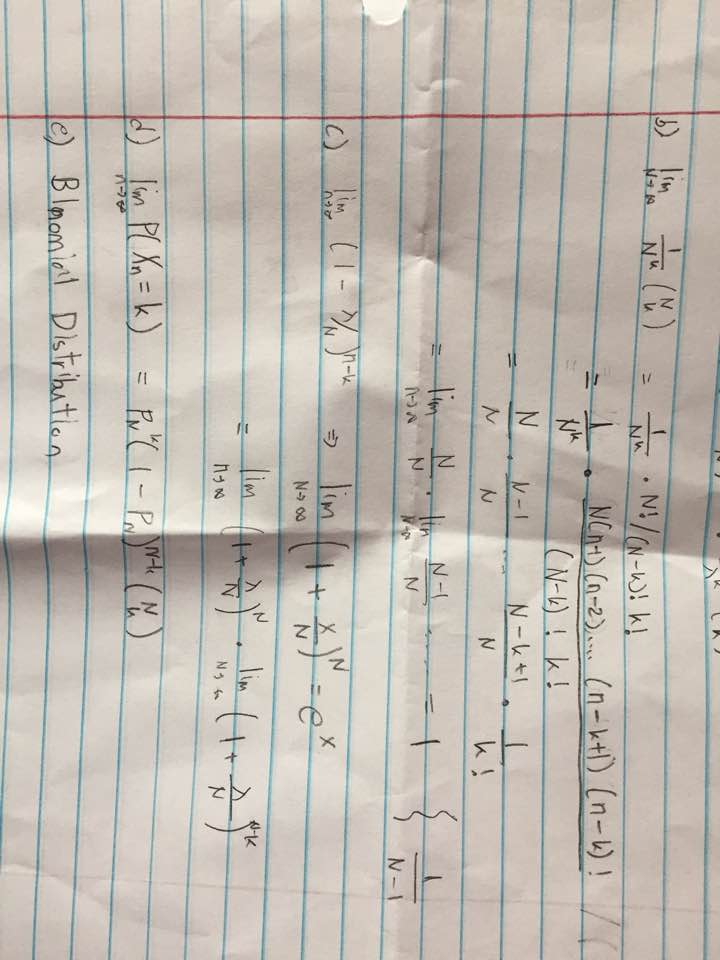 λ^k (k)
b) lim N→∞ 1/N^k (N k) = 1/N^k · N!/(N-k)! k!
= 1/N^k · N(n-1)(n-2).... (n-k+1)(n-k)! / (N-k)! k!
= N/N · N-1/N ... N-k+1/N · 1/k!
= lim n→∞ N/N · lim N→∞ N-1/N ..... = 1 { 1/N-1
c) lim n→∞ (1 - λ/N)^n-k ⇒ lim N→∞ (1 + x/N)^N = e^x
= lim n→∞ (1 + λ/N)^N · lim N→∞ (1 + λ/N)^N-k
d) lim n→∞ P(Xn = k) = P_N^k (1 - P_N)^N-k (N k)
e) Binomial Distribution